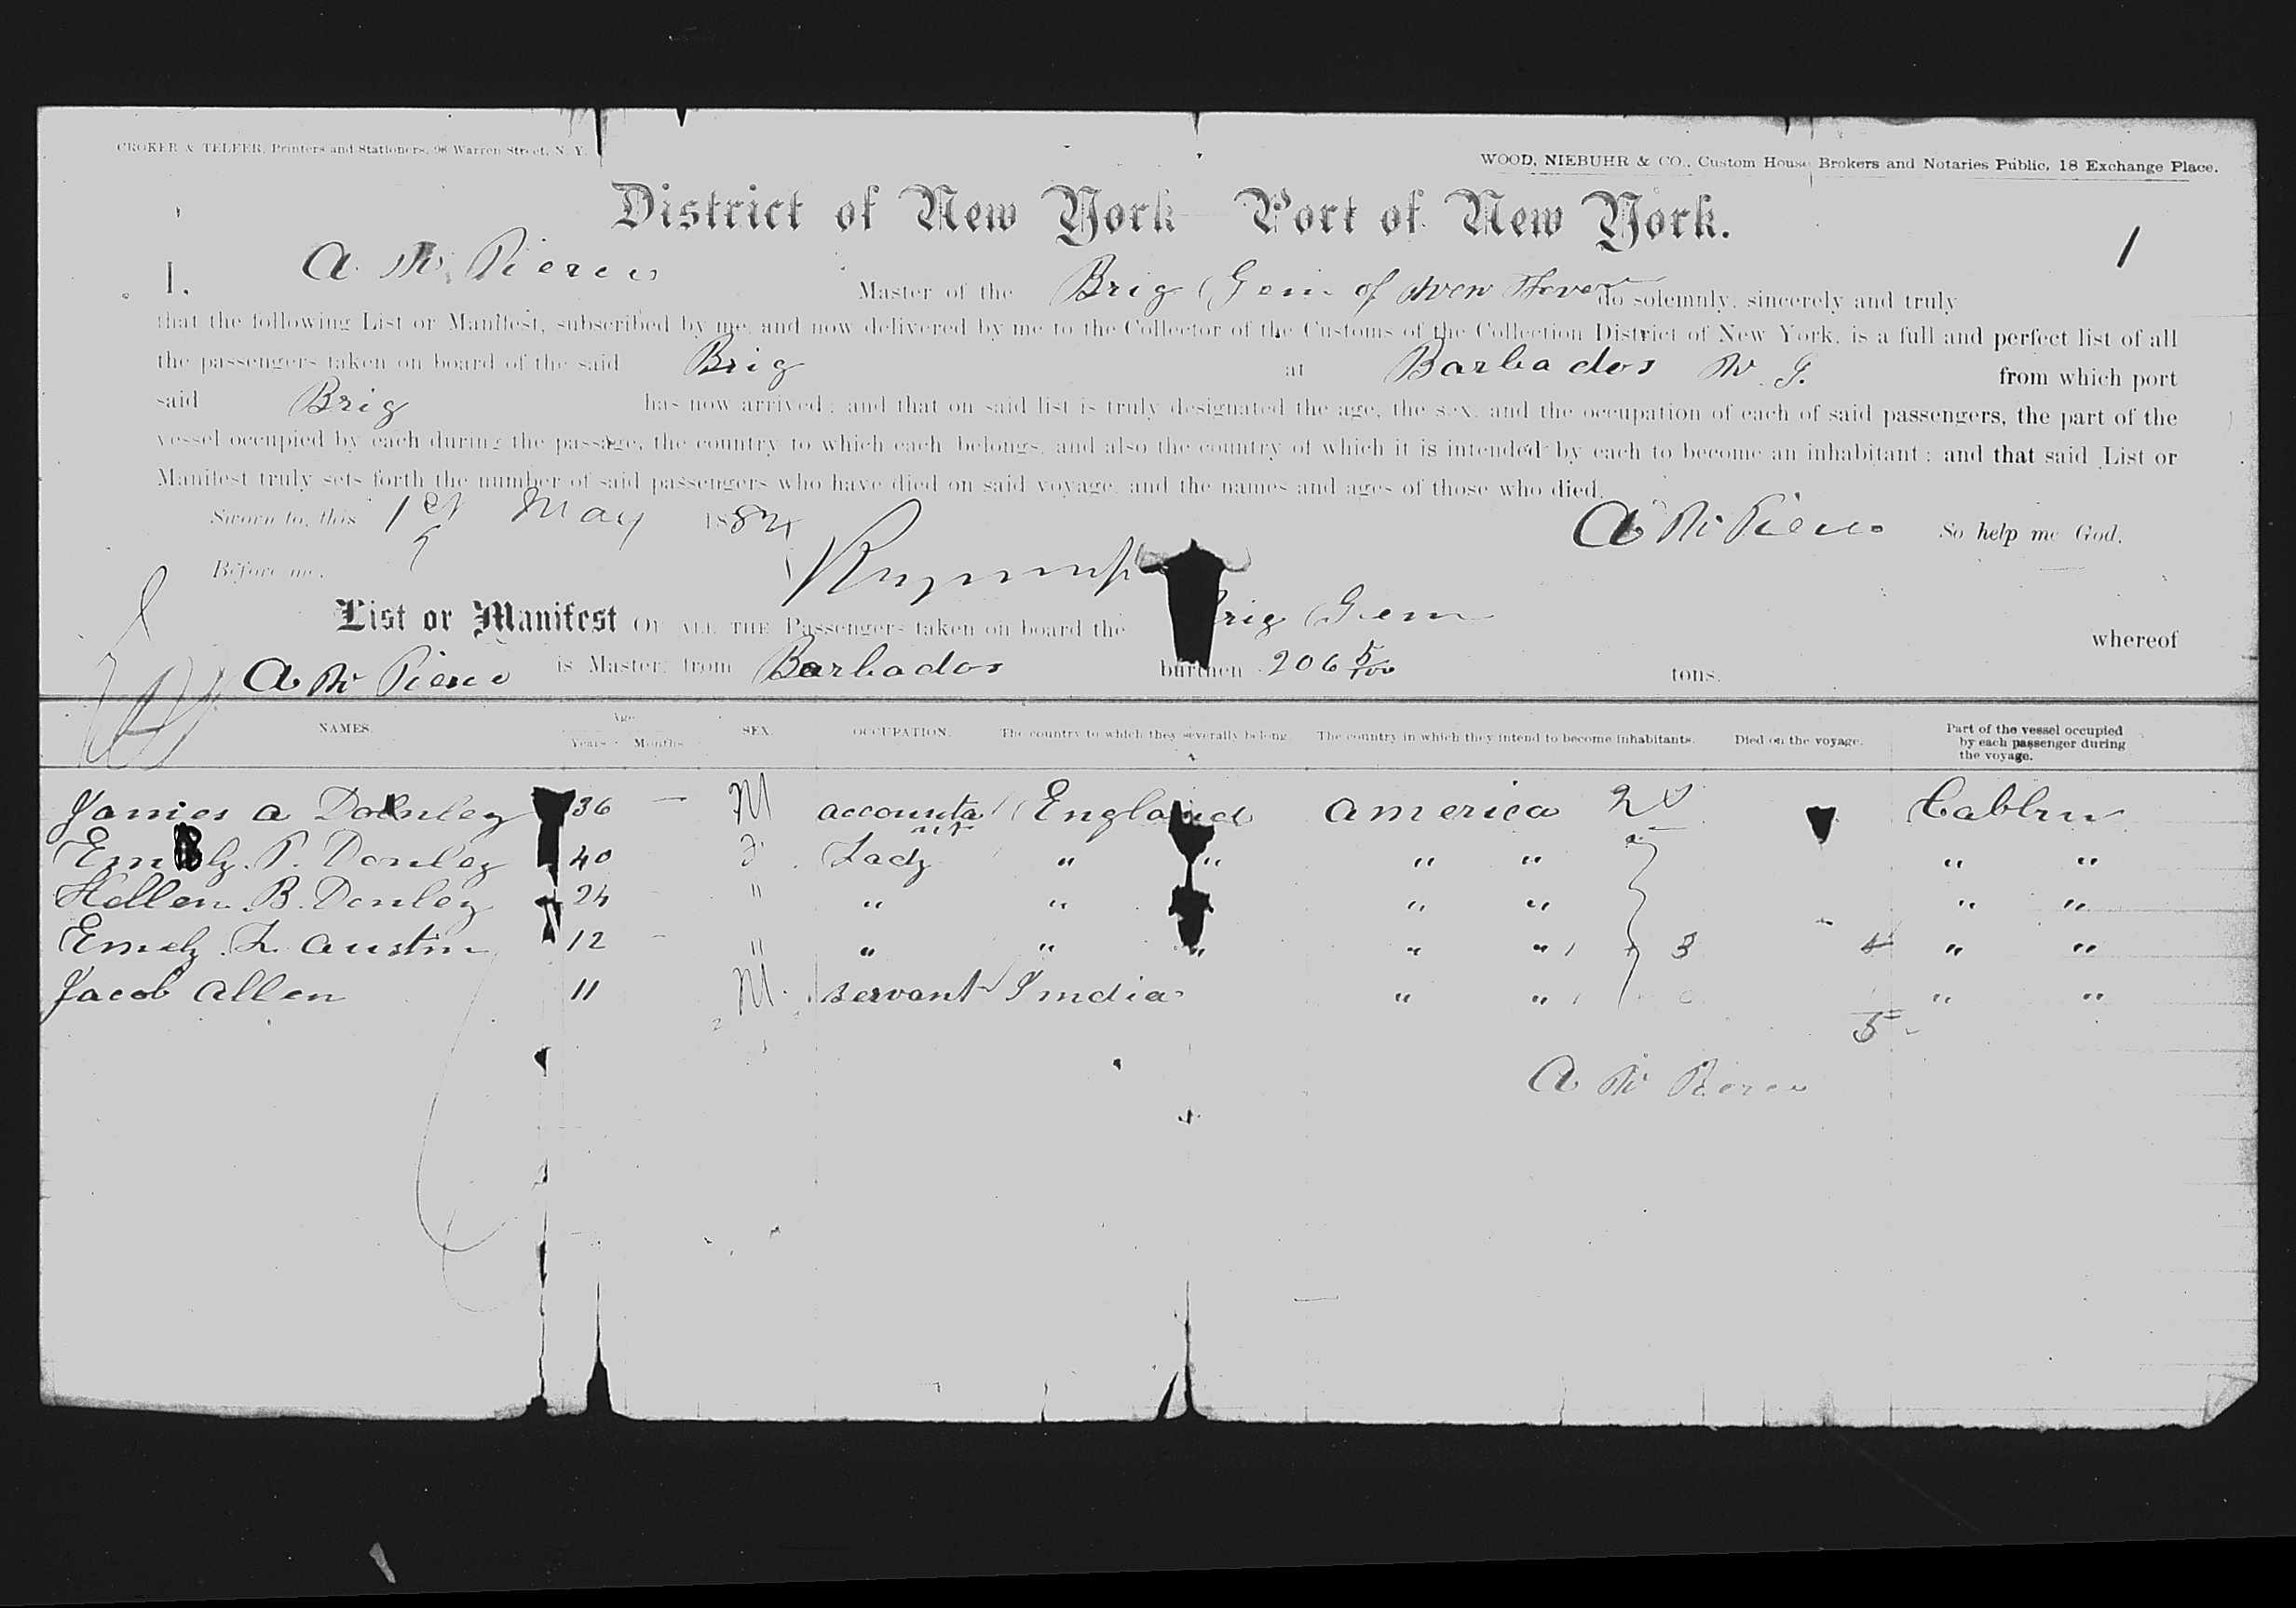 CROKER & TELFER, Printers and Stationers, 98 Warren Street, N. Y.
WOOD, NIEBUHR & CO., Custom House Brokers and Notaries Public, 18 Exchange Place.
District of New York Port of New York.
1
I, A. W. Pierce Master of the Brig Gem of New Haven do solemnly, sincerely and truly
that the following List or Manifest, subscribed by me, and now delivered by me to the Collector of the Customs of the Collection District of New York, is a full and perfect list of all
the passengers taken on board of the said Brig at Barbados W. I. from which port
said Brig has now arrived; and that on said list is truly designated the age, the sex, and the occupation of each of said passengers, the part of the
vessel occupied by each during the passage, the country to which each belongs, and also the country of which it is intended by each to become an inhabitant; and that said List or
Manifest truly sets forth the number of said passengers who have died on said voyage, and the names and ages of those who died.
Sworn to, this 1st May 188 A W Pierce So help me God.
Before me,
List or Manifest OF ALL THE Passengers taken on board the Brig Gem whereof
A W Pierce is Master, from Barbados burthen 206 5/100 tons.
NAMES. Age Years Months SEX. OCCUPATION. The country to which they severally belong. The country in which they intend to become inhabitants. Died on the voyage. Part of the vessel occupied by each passenger during the voyage.
James A Donley 36 — M accountant England America 2
Emily P. Donley 40 Lady " " " " " "
Hellen B. Donley 24 " " " " " " "
Emely L. Austin 12 - " " " " " " 3 " "
Jacob Allen 11 M. servant India " " " "
5
A W Pierce